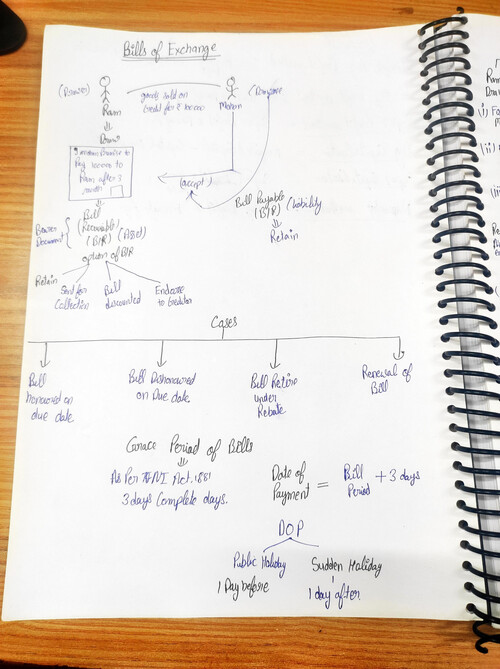 Bills of Exchange
(Drawer)
Ram
goods sold on
Credit for ₹
Mohan
Draws
Promise to
Pay to
Ram after 3
month
(accept)
Bill
Receivable
(B/R) (Asset)
Document
option of B/R
Bill Payable
(B/P) (Liability
Retain
Retain
Sent for
Collection
Bill
discounted
Endorse
to Creditor
Cases
Bill
honoured on
due date
Bill Dishonoured
on Due date
Bill Retire
under
Rebate
Renewal of
Bill
Grace Period of Bills
As Per NI Act. 1881
3 days Complete days.
Date of
Payment = Bill
Period + 3 days
DOP
Public Holiday
1 Day before
Sudden Haliday
1 day after
(i)
(ii)